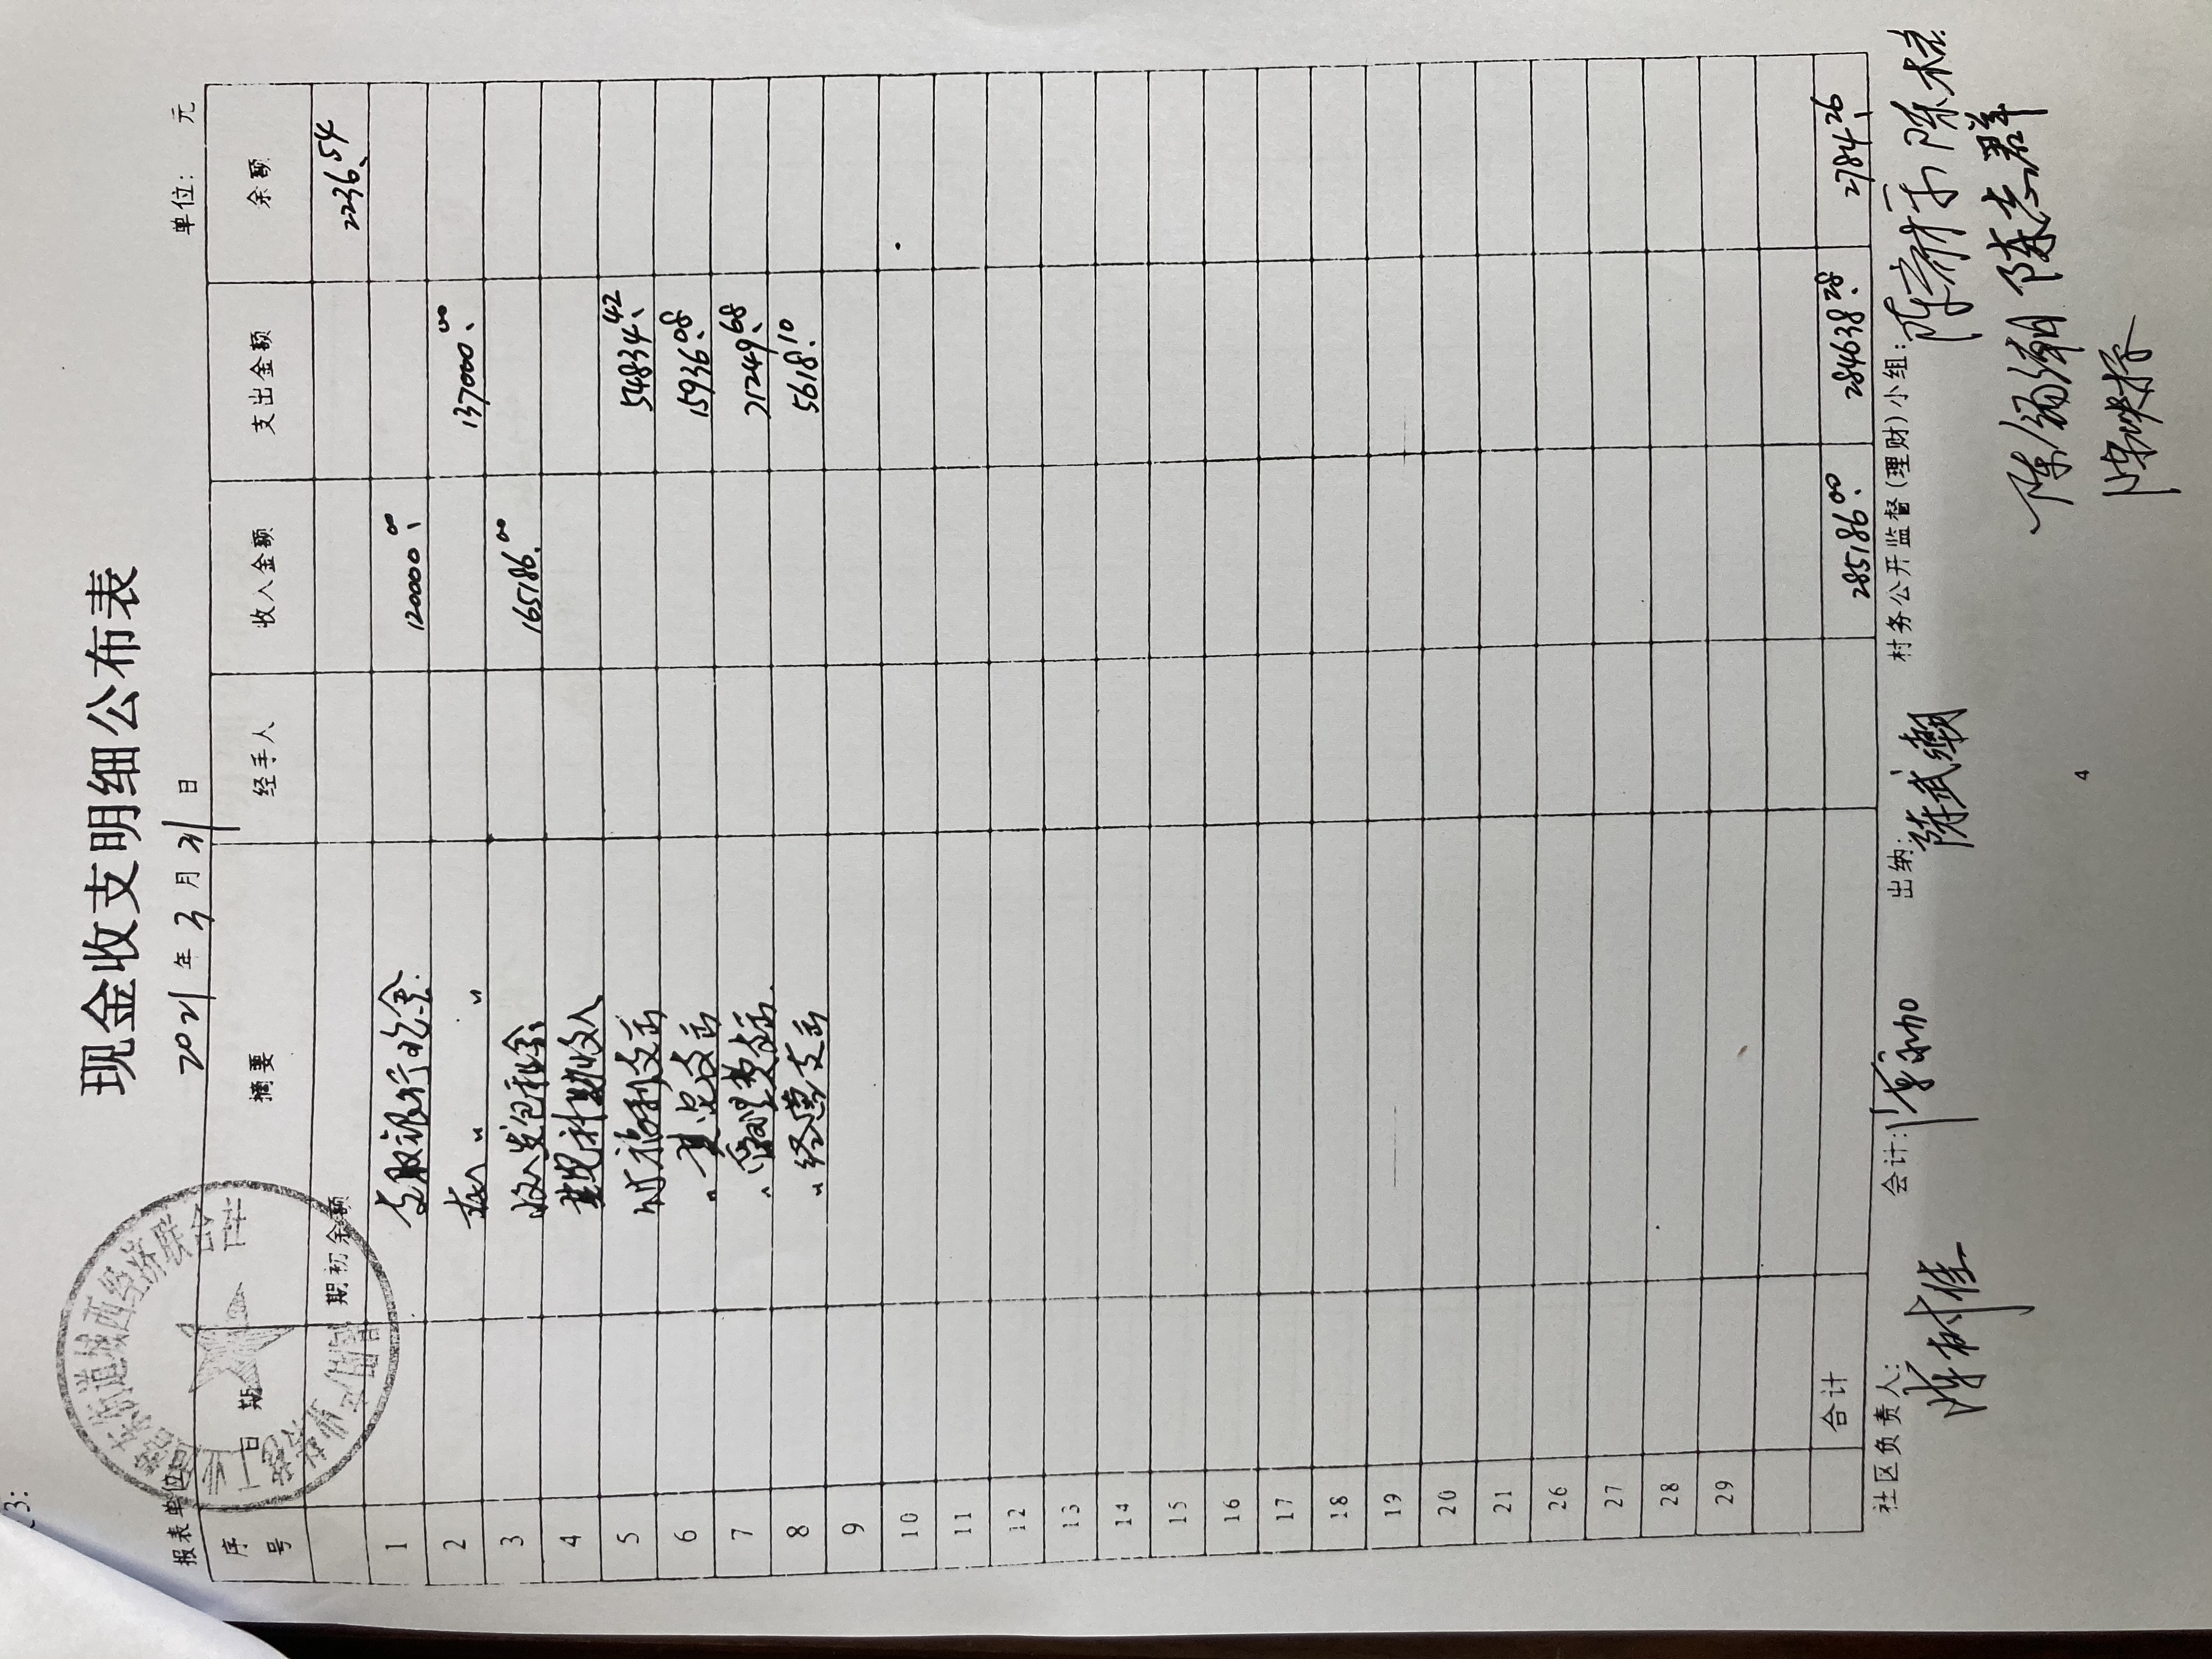 现金收支明细公布表
2021年3月31日
报表单位: 单位: 元
序号 日期 摘要 经手人 收入金额 支出金额 余额
期初余额 2236.54
1 支取银行现金 120000.00
2 存入 〃 〃 137000.00
3 收入发包租金 165186.00
4 其它补助收入
5 付福利支出 54834.42
6 〃 其它支出 15936.08
7 〃 管理费支出 71249.68
8 〃 经营支出 5618.10
9
10
11
12
13
14
15
16
17
18
19
20
21
26
27
28
29
合计 285186.00 284638.28 2784.26
社区负责人: 陈树佳 会计: 出纳: 陈武潮 村务公开监督(理财)小组:
陈志群
4